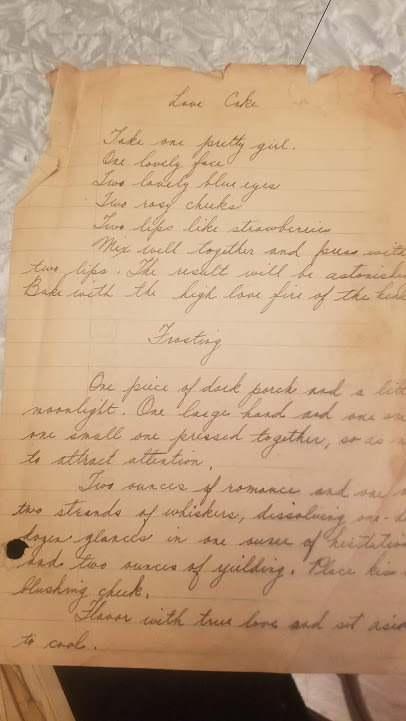 Love Cake
Take one pretty girl.
One lovely face
Two lovely blue eyes
Two rosy cheeks
Two lips like strawberries
Mix well together and press with
two lips. The result will be
Bake with the high love fire of the
Frosting
One piece of dark porch and a
moonlight. One large hand and one
one small one pressed together, so as
to attract attention.
Two ounces of romance and one
two strands of whiskers, dissolving one-
dozen glances in one ounce of
and two ounces of yeilding. Place kiss
blushing cheek.
Flavor with true love and set
to cool.